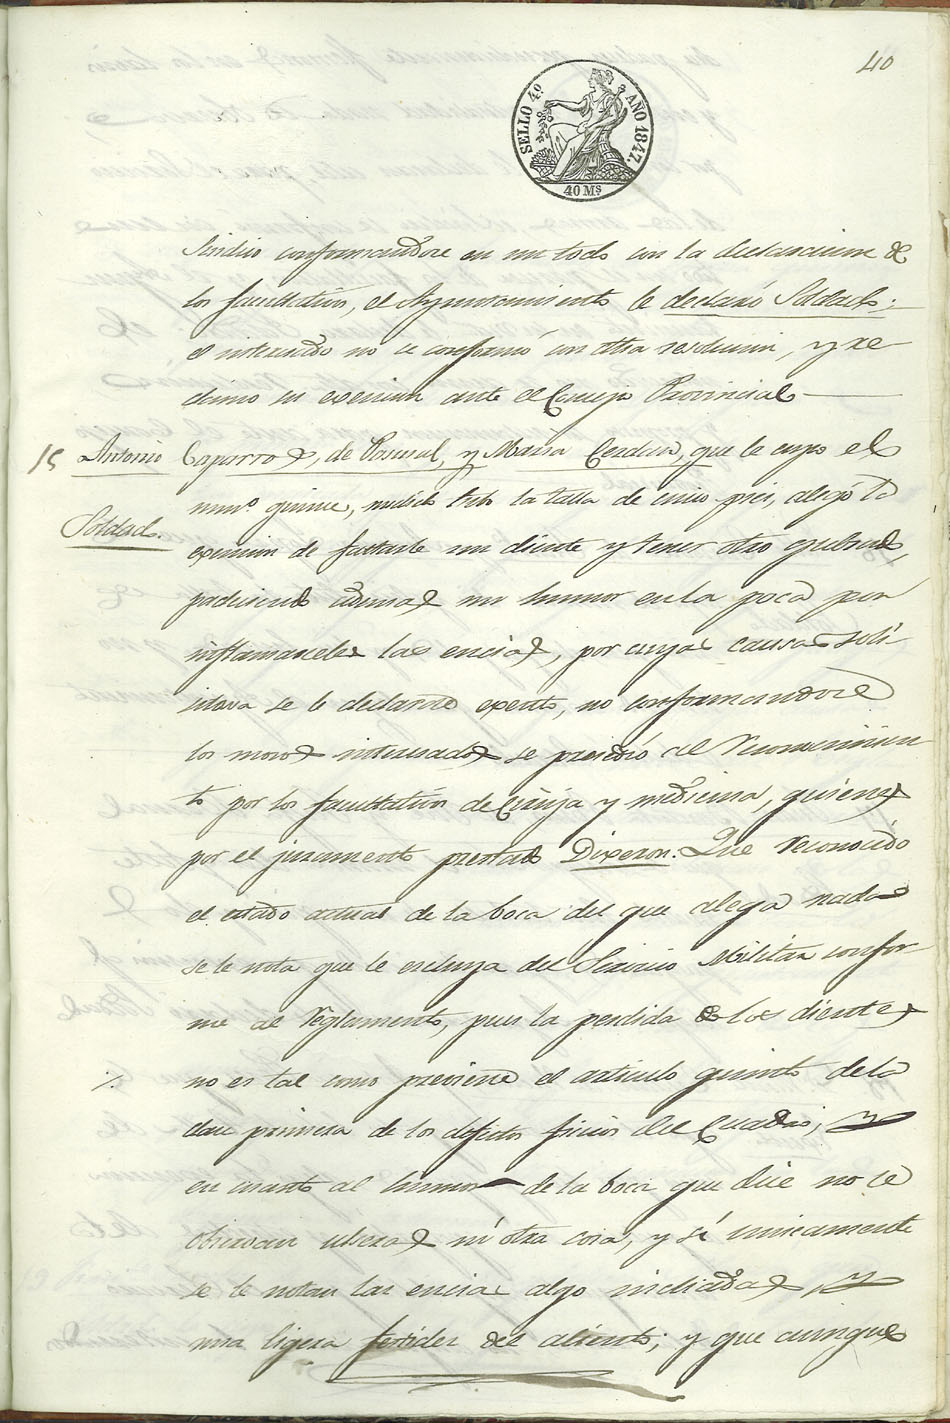 40
SELLO 4º AÑO 1847.
40 Ms
Sindico conformandose en un todo con la declaracion de
los facultativos, el Ayuntamiento le declaró Soldado;
el interesado no se conformó con esta resolucion, y re
clamo su exencion ante el Consejo Provincial
15 Antonio Caparros, de Pascual, y Maria Cerdan, que le cupo el
Soldado.
num.º quince, medido tubo la talla de cinco pies, alegó la
exencion de faltarle un diente y tener otro quebrado,
padeciendo ademas un humor en la boca por
inflamarcele las encias, por cuyas causas soli-
citava se le declarase exento, no conformandose
los mozos interesados se procedió al reconocimien
to por los facultativos de Cirujia y medicina, quienes
por el juramento prestado Dixeron: Que reconocido
el estado actual de la boca del que alega nada
se le nota que le escluya del Servicio Militar confor-
me al reglamento, pues la perdida de los dientes
no es tal como previene el articulo quinto de la
clase primera de los defectos fisicos del Cuadro; y
en cuanto al humor de la boca que dice no se
observan ulceras ni otra cosa, y sí unicamente
se le notan las encias algo inchadas, y
una ligera fetidez del aliento; y que aunque